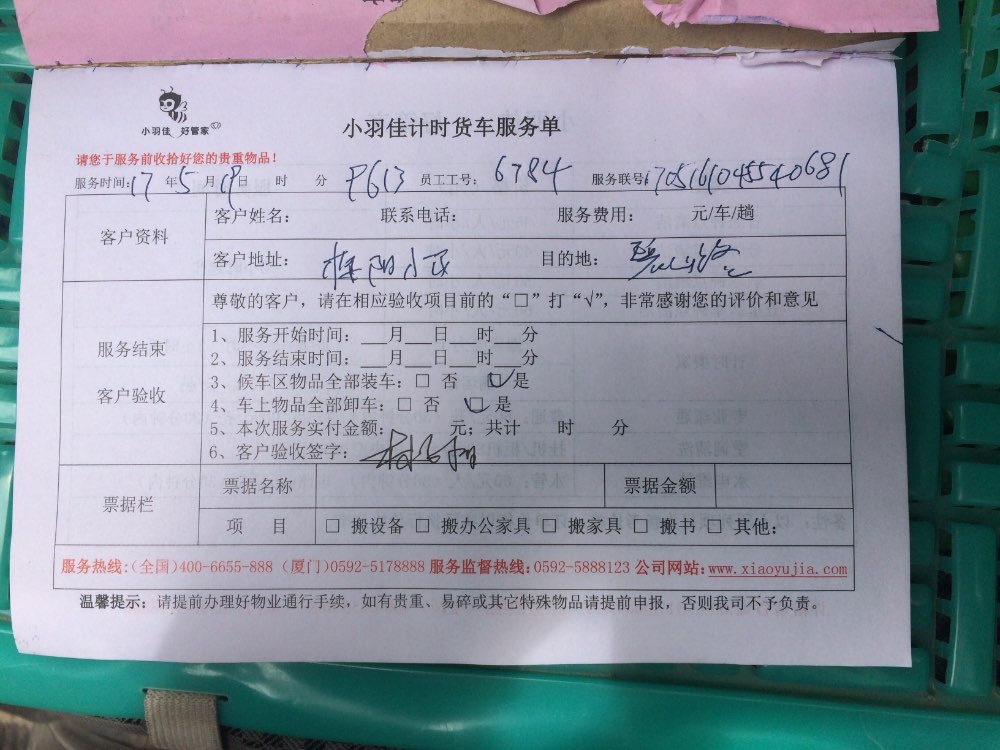 小羽佳 好管家
小羽佳计时货车服务单
请您于服务前收拾好您的贵重物品！
服务时间：17年5月19日 时 分 P613 员工工号：6784 服务联号：
客户资料
客户姓名： 联系电话： 服务费用： 元/车/趟
客户地址： 阳小区 目的地：
服务结束
客户验收
尊敬的客户，请在相应验收项目前的“□”打“√”，非常感谢您的评价和意见
1、服务开始时间：___月___日___时___分
2、服务结束时间：___月___日___时___分
3、候车区物品全部装车：□ 否 ☑是
4、车上物品全部卸车：□ 否 ☑是
5、本次服务实付金额： 元；共计 时 分
6、客户验收签字：
票据栏
票据名称 票据金额
项 目 □ 搬设备 □ 搬办公家具 □ 搬家具 □ 搬书 □ 其他：
服务热线：（全国）400-6655-888（厦门）0592-5178888 服务监督热线：0592-5888123 公司网站：www.xiaoyujia.com
温馨提示：请提前办理好物业通行手续，如有贵重、易碎或其它特殊物品请提前申报，否则我司不予负责。